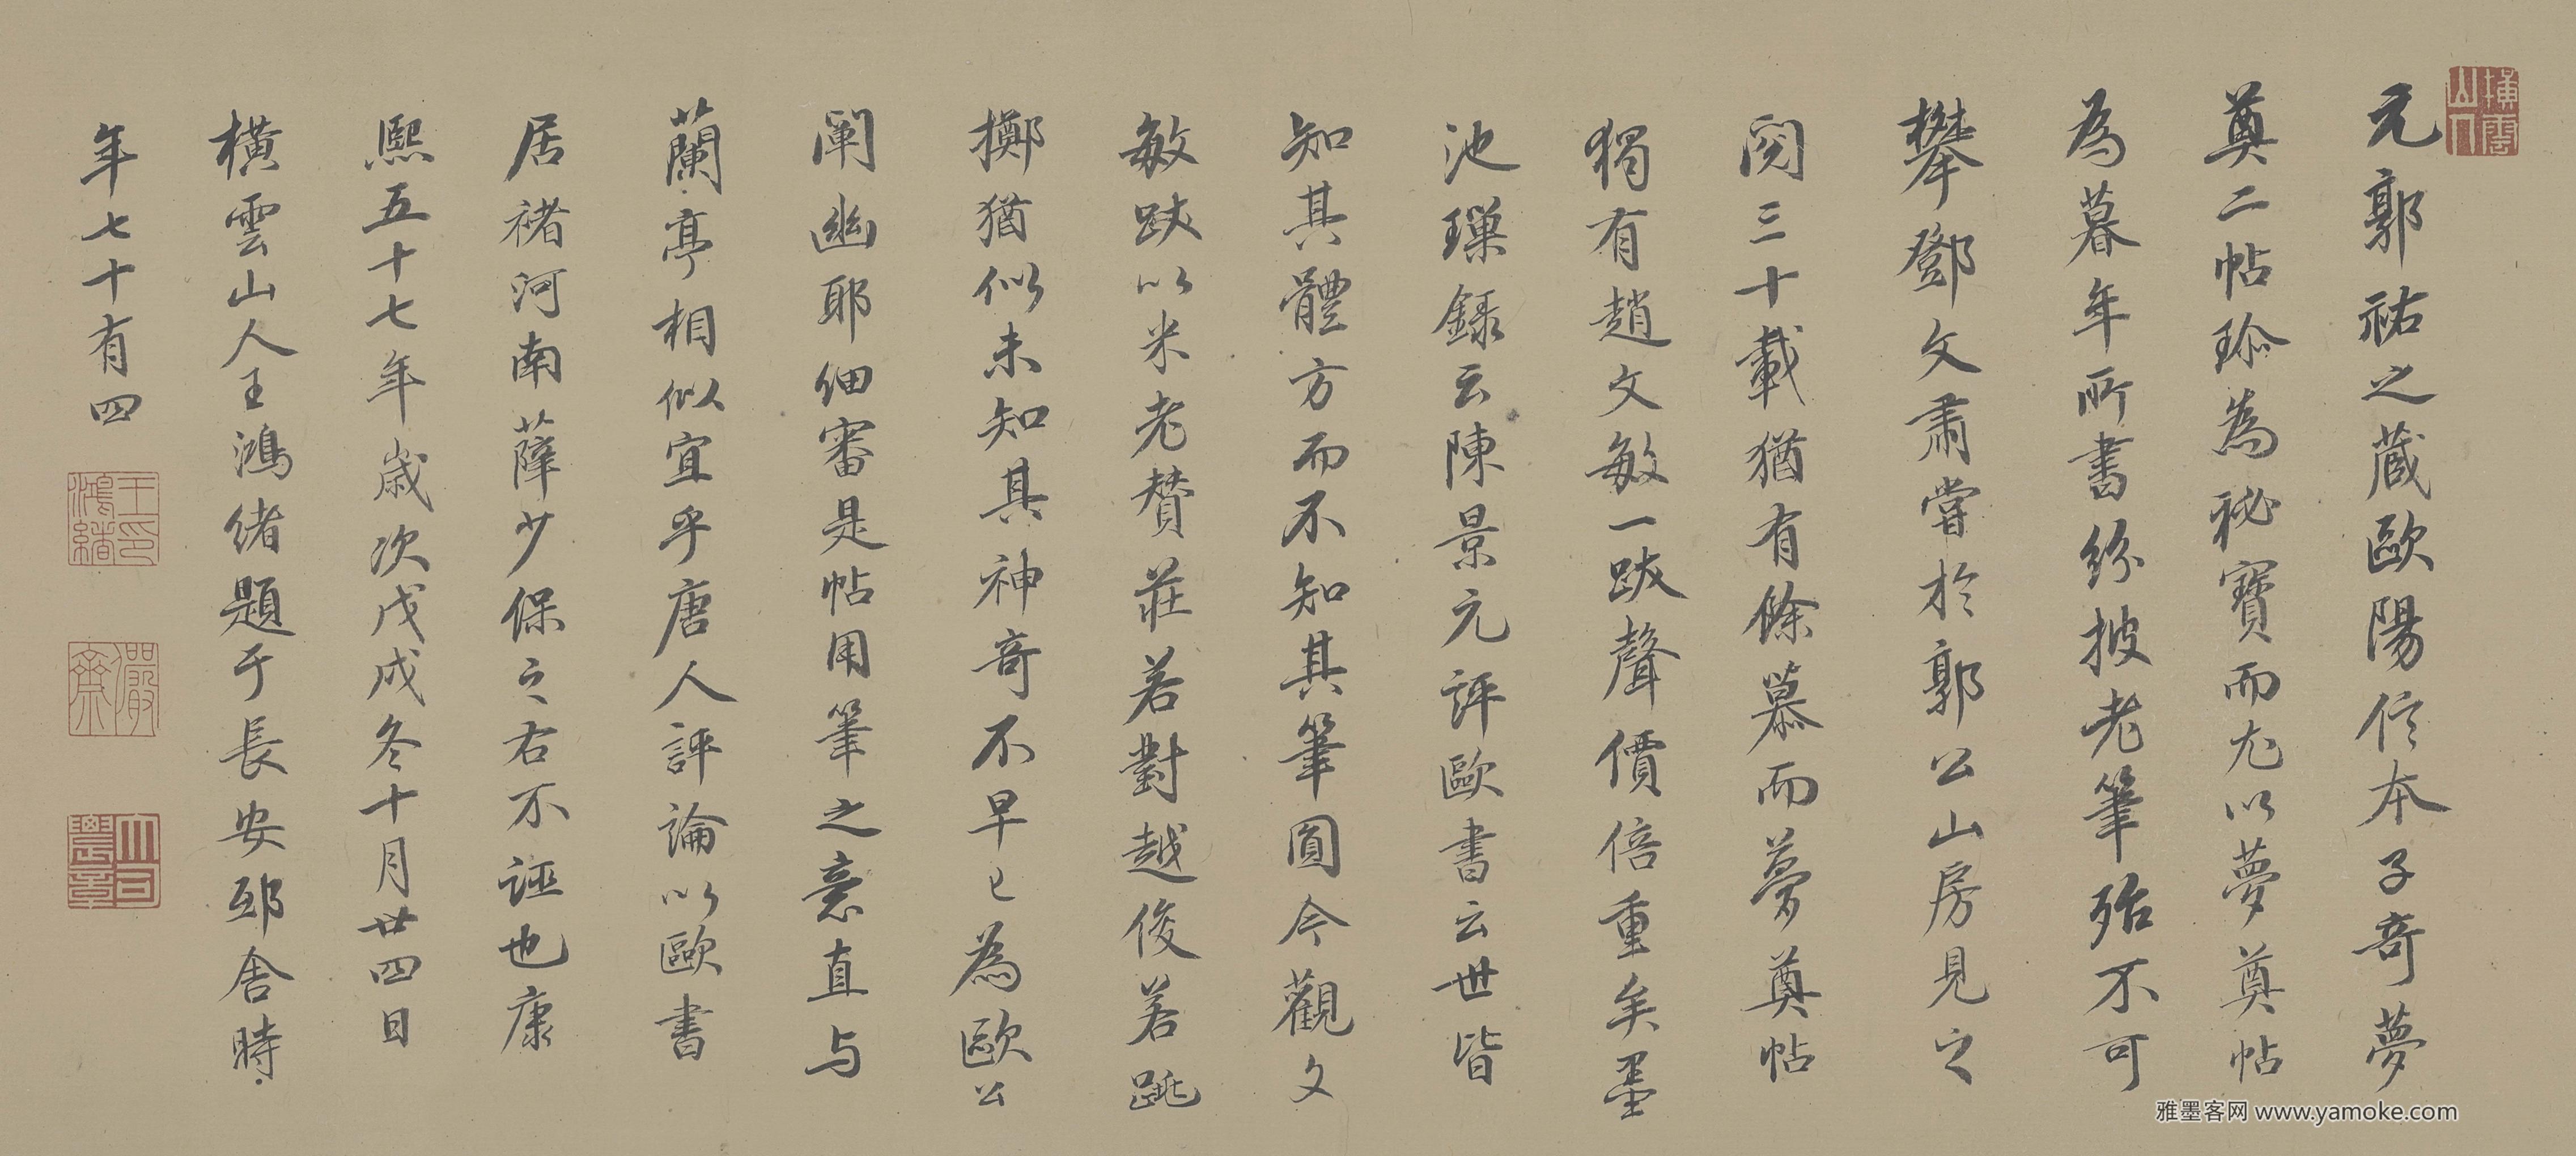 橫雲山人
元郭祐之藏歐陽信本子奇夢
奠二帖珎為秘寶而尤以夢奠帖
為暮年所書紛披老筆殆不可
攀鄧文肅嘗於郭公山房見之
閱三十載猶有餘慕而夢奠帖
獨有趙文敏一跋聲價倍重矣墨
池璅錄云陳景元評歐書云世皆
知其體方而不知其筆圓今觀文
敏跋以米老贊莊若對越俊若跳
擲猶似未知其神奇不早已為歐公
闡幽耶細審是帖用筆之意直与
蘭亭相似宜乎唐人評論以歐書
居褚河南薛少保之右不誣也康
熙五十七年歲次戊戌冬十月廿四日
橫雲山人王鴻緒題于長安邸舍時
年七十有四
王鴻緒印
儼齋
雅墨客网 www.yamoke.com